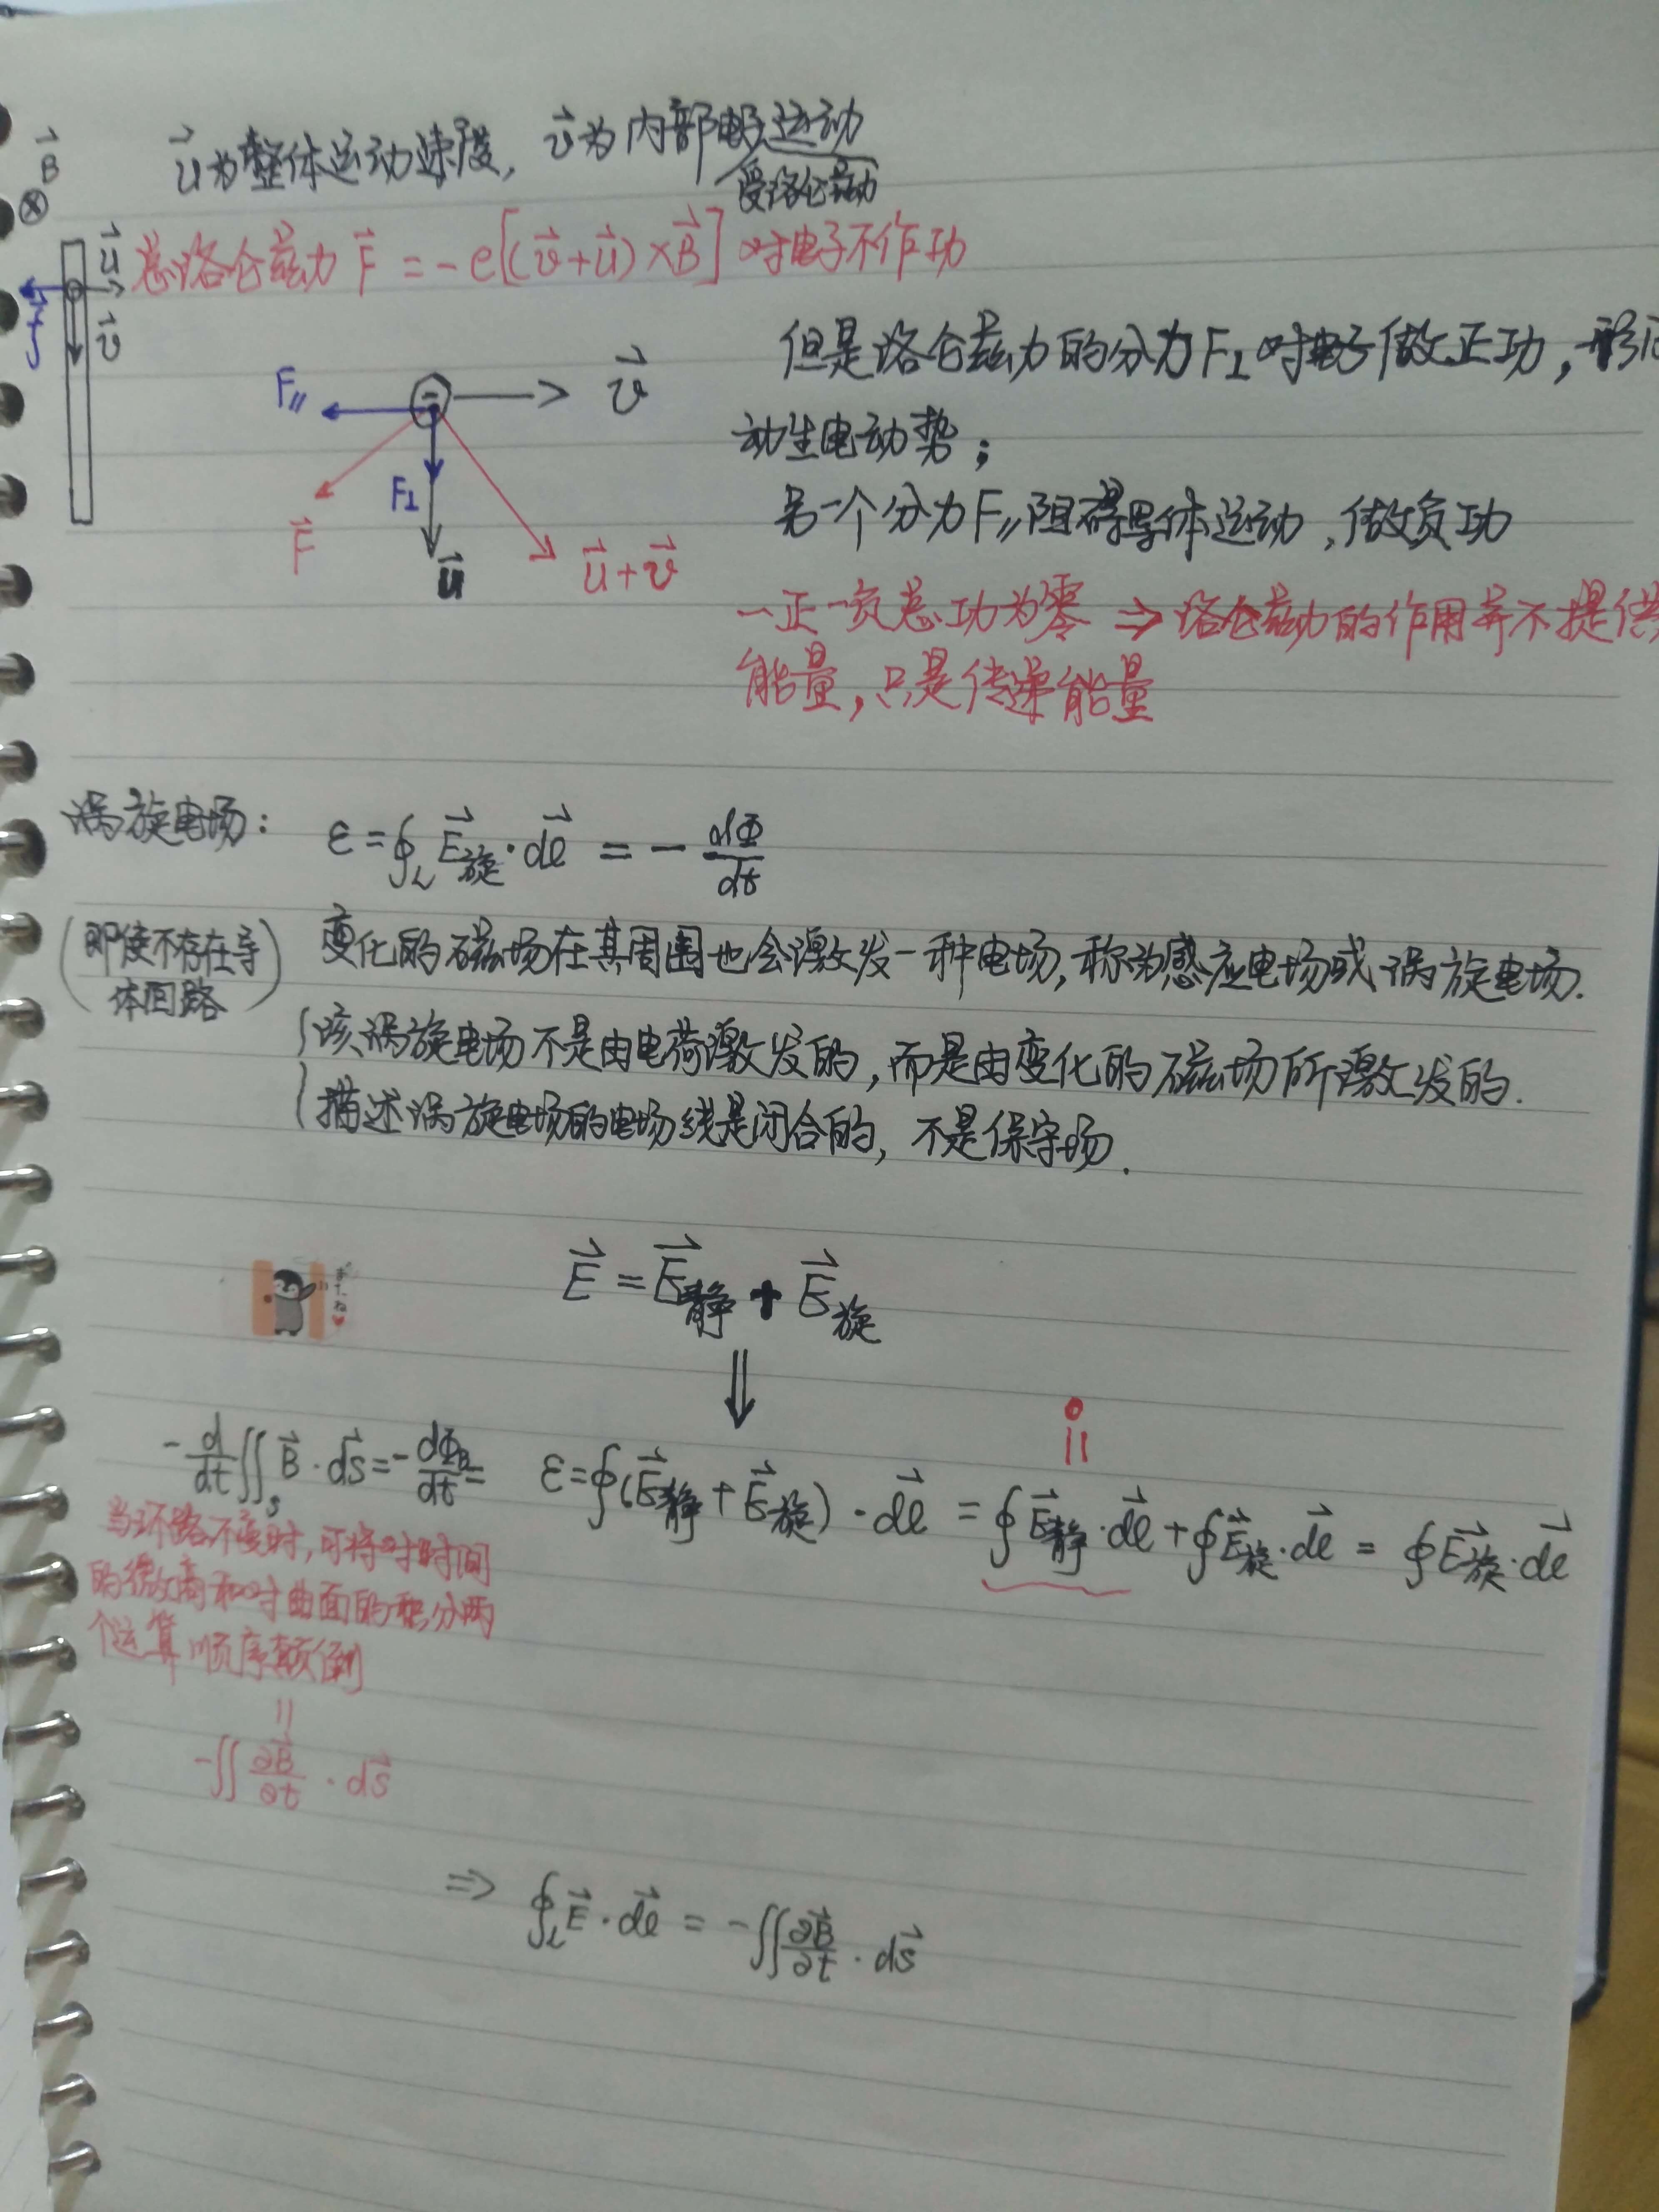 B⃗
⊗
u⃗为整体运动速度, v⃗为内部电子运动
受洛仑兹力
总洛仑兹力 F⃗ = -e[(v⃗+u⃗)×B⃗] 对电子不作功
u⃗
f⃗
v⃗
但是洛仑兹力的分力F⊥对电子做正功,形
动生电动势;
另一个分力F∥阻碍导体运动,做负功
一正一负总功为零 ⇒ 洛仑兹力的作用并不提供
能量,只是传递能量
F∥
v⃗
F⊥
F⃗
u⃗
u⃗+v⃗
涡旋电场: ε=∮_L E⃗旋·dl⃗ = - dΦ/dt
(即使不存在导
体回路)
变化的磁场在其周围也会激发一种电场,称为感应电场或涡旋电场.
该涡旋电场不是由电荷激发的,而是由变化的磁场所激发的.
描述涡旋电场的电场线是闭合的, 不是保守场.
またね
E⃗ = E⃗静 + E⃗旋
⇓
0
=
-d/dt ∬_S B⃗·ds⃗ = -dΦ_B/dt = ε=∮(E⃗静+E⃗旋)·dl⃗ = ∮E⃗静·dl⃗+∮E⃗旋·dl⃗ = ∮E⃗旋·dl⃗
当环路不变时,可将对时间
的微商和对曲面的积分两
个运算顺序颠倒
=
-∬ ∂B⃗/∂t · ds⃗
⇒ ∮_L E⃗·dl⃗ = -∬ ∂B⃗/∂t · ds⃗